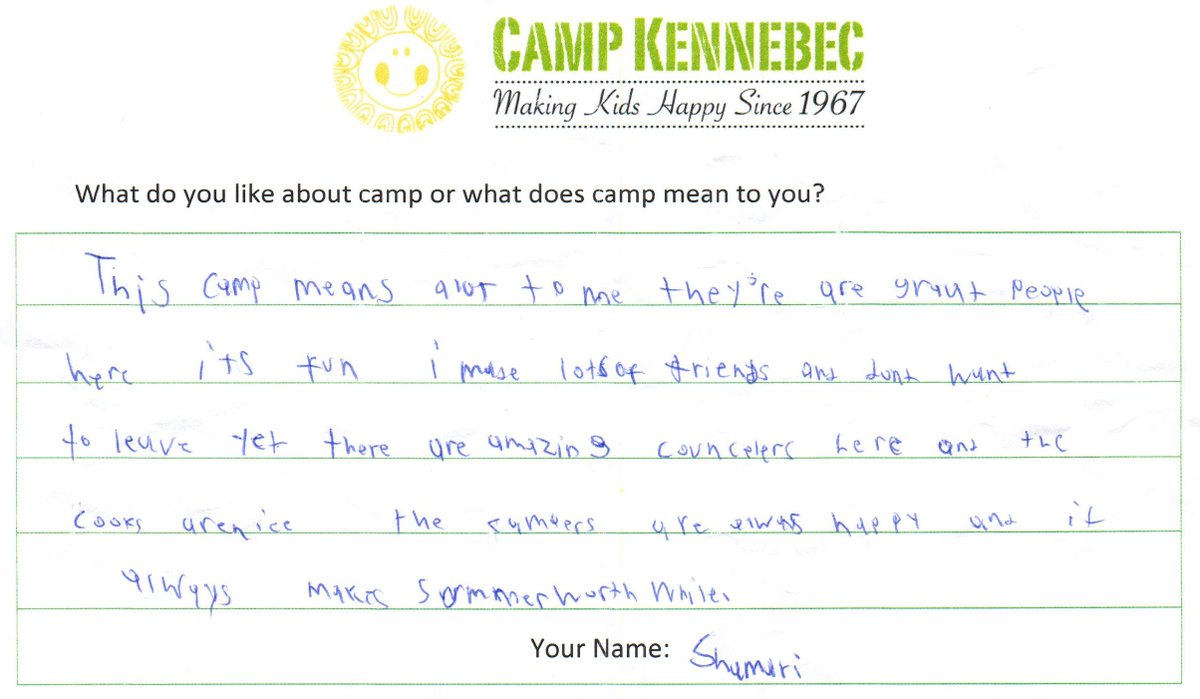 CAMP KENNEBEC
Making Kids Happy Since 1967
What do you like about camp or what does camp mean to you?
This camp means alot to me they're are graut people
here it's fun i made lots of friends and dont want
to leave yet there are amazing councelers here and the
cooks are nice the campers are always happy and it
always makes Summer worth while.
Your Name: Shamari